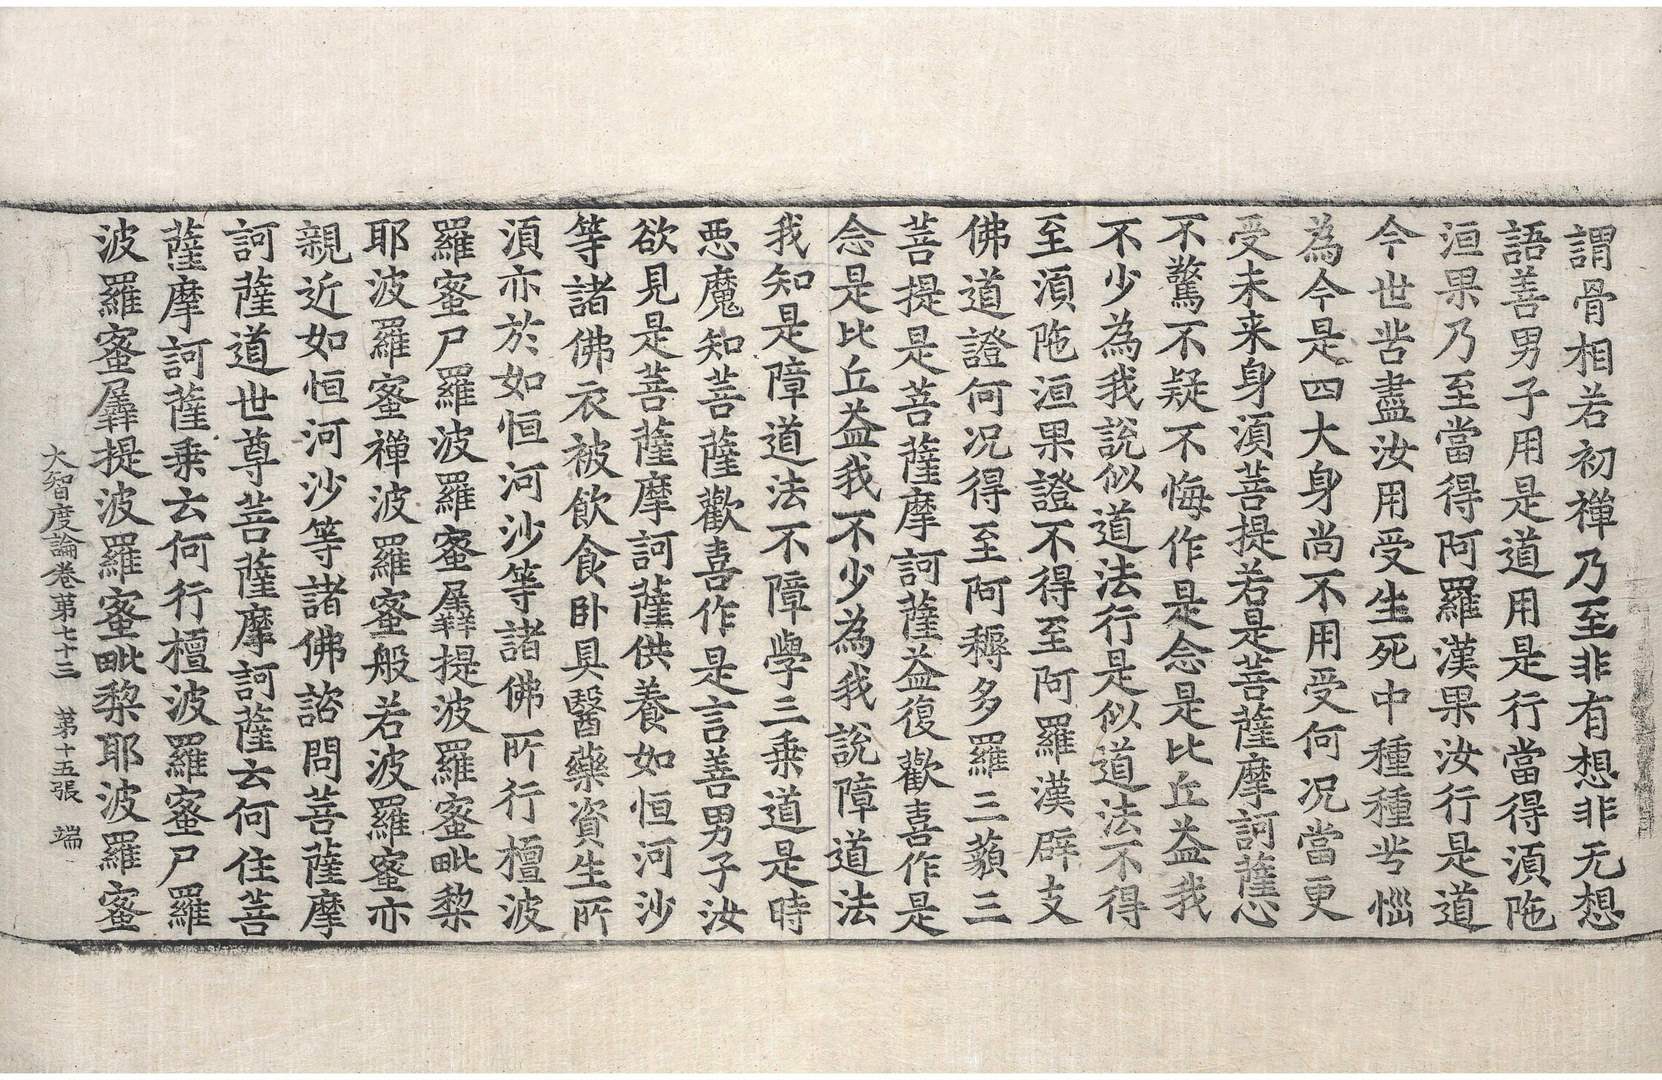 謂骨相若初禪乃至非有想非无想
語善男子用是道用是行當得湏陁
洹果乃至當得阿羅漢果汝行是道
今世苦盡汝用受生死中種種苦惱
為今是四大身尚不用受何况當更
受未来身湏菩提若是菩薩摩訶薩心
不驚不疑不悔作是念是比丘益我
不少為我說似道法行是似道法不得
至湏陁洹果證不得至阿羅漢辟支
佛道證何况得至阿耨多羅三藐三
菩提是菩薩摩訶薩益復歡喜作是
念是比丘益我不少為我說障道法
我知是障道法不障學三乗道是時
惡魔知菩薩歡喜作是言善男子汝
欲見是菩薩摩訶薩供養如恒河沙
等諸佛衣被飲食卧具醫藥資生所
湏亦於如恒河沙等諸佛所行檀波
羅蜜尸羅波羅蜜羼提波羅蜜毗梨
耶波羅蜜禪波羅蜜般若波羅蜜亦
親近如恒河沙等諸佛諮問菩薩摩
訶薩道世尊菩薩摩訶薩云何住菩
薩摩訶薩乗云何行檀波羅蜜尸羅
波羅蜜羼提波羅蜜毗梨耶波羅蜜
大智度論卷第七十三　第十五張　端